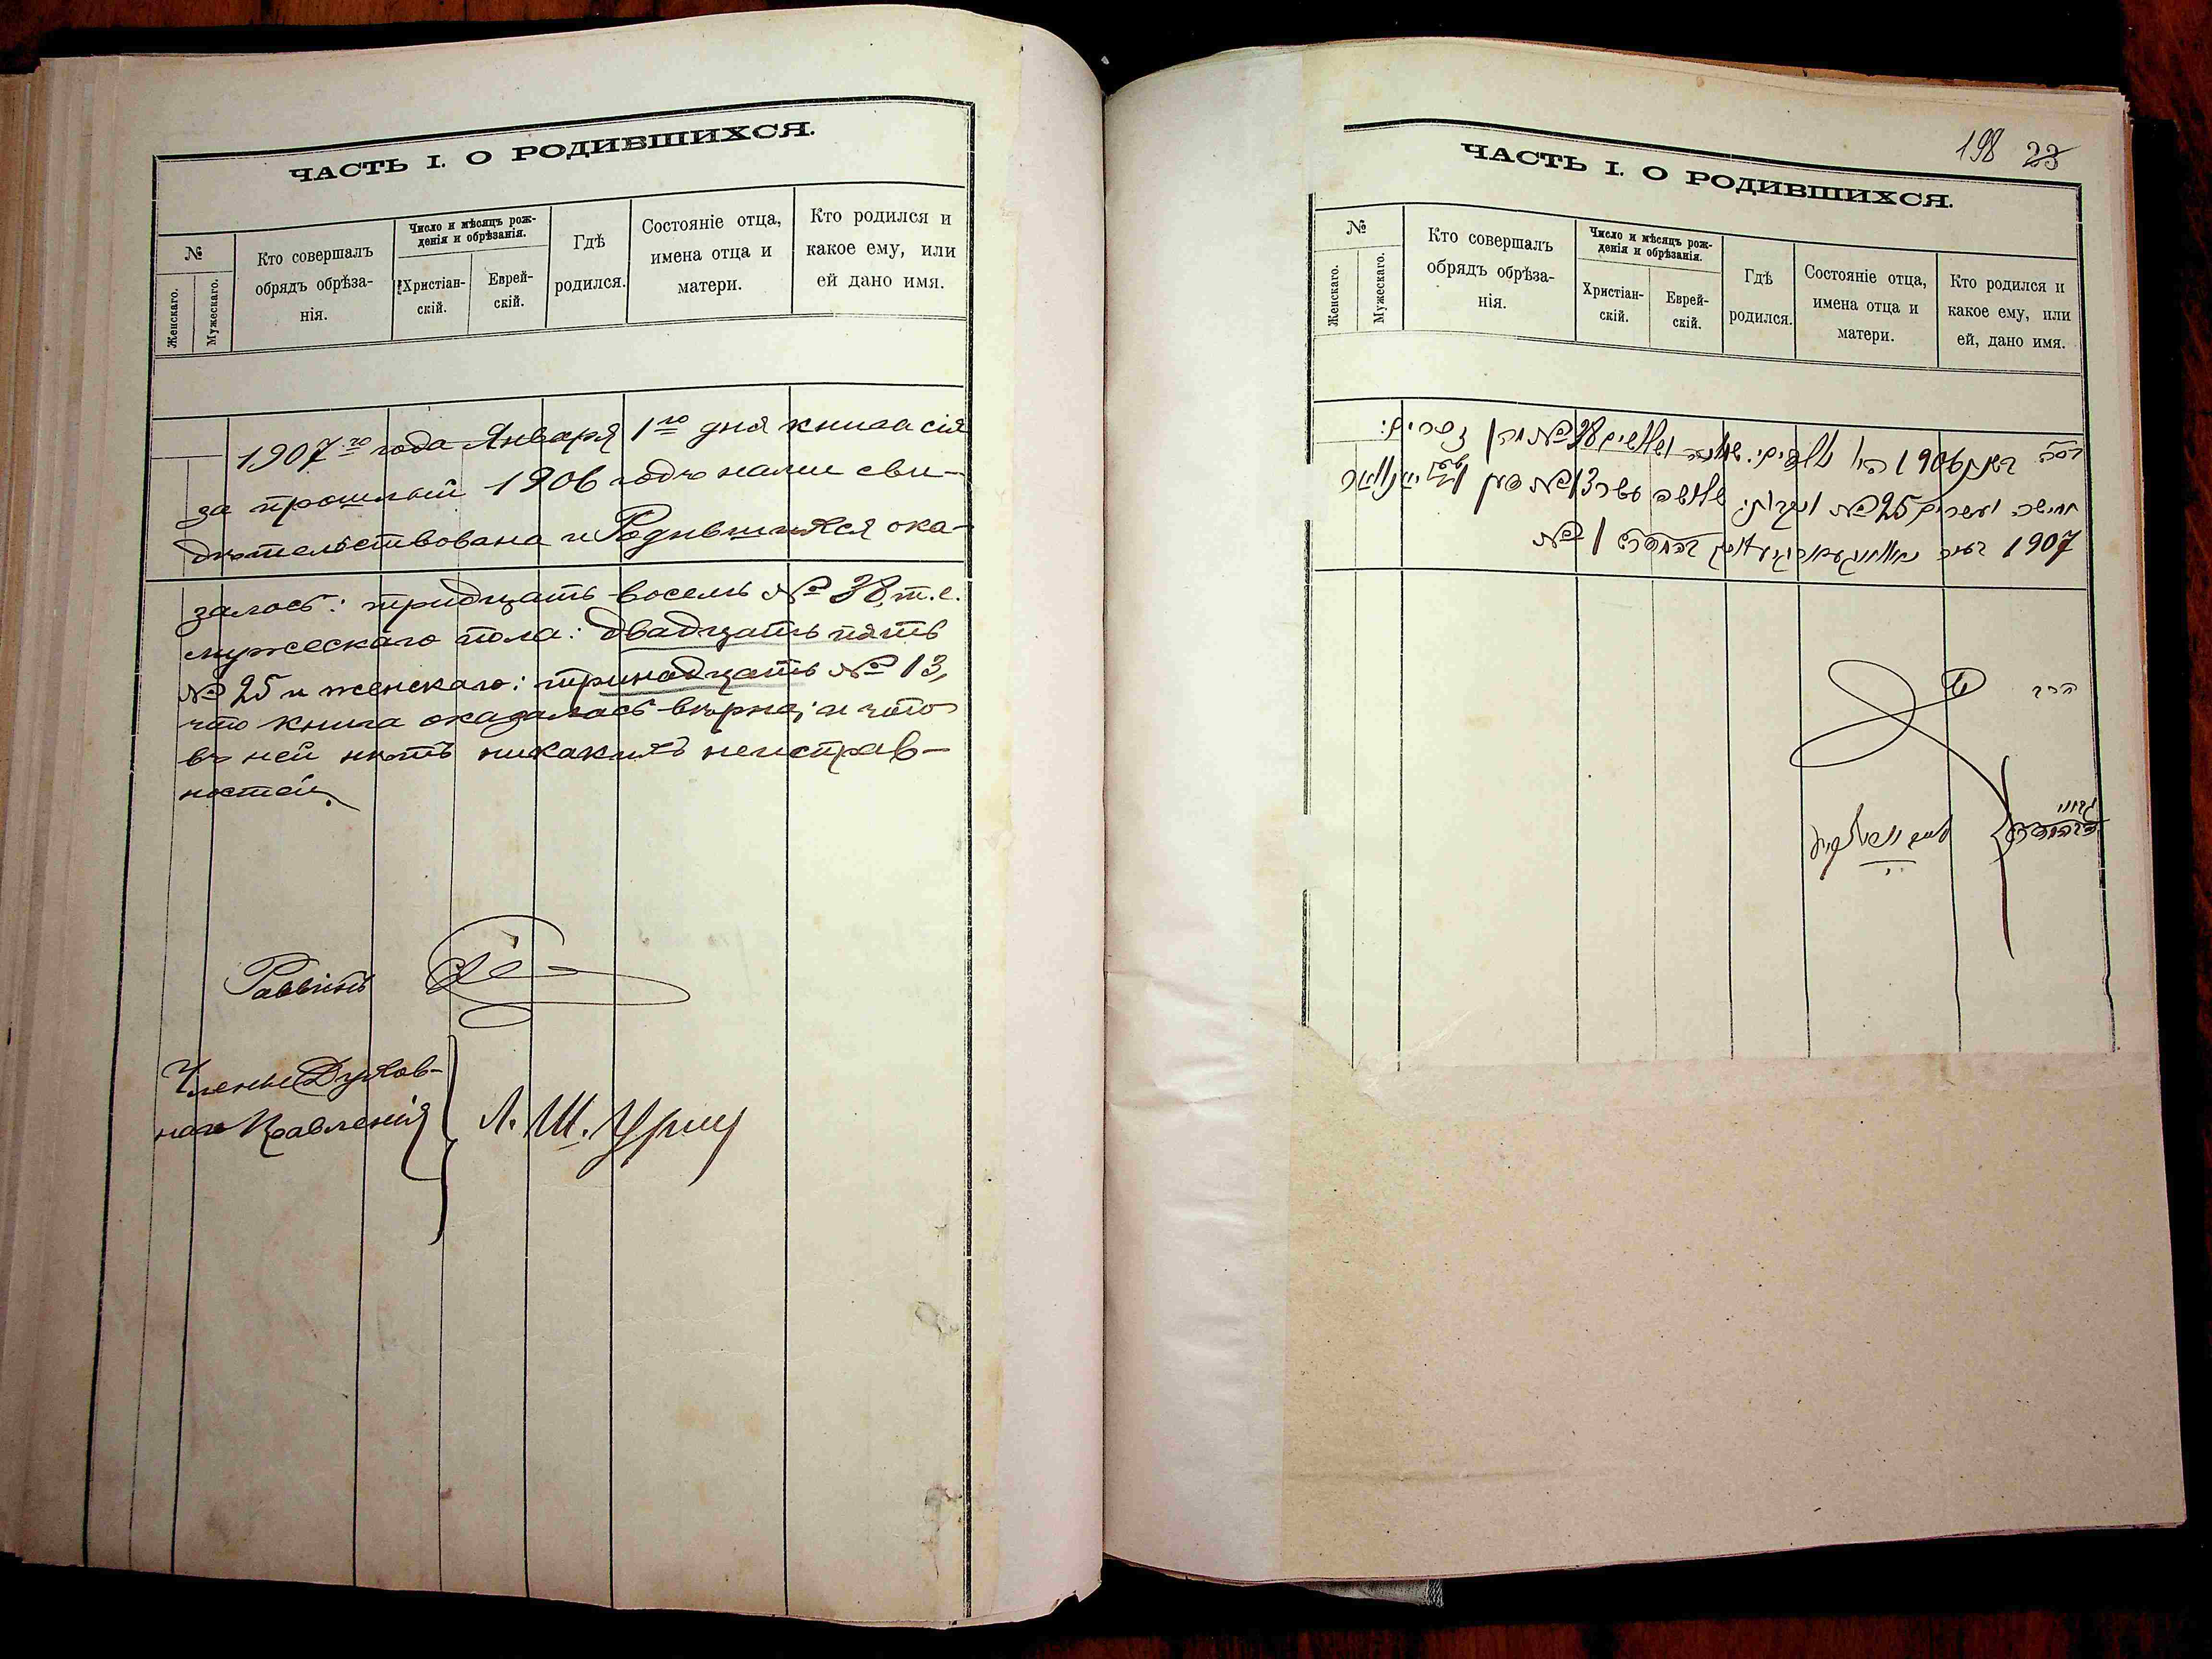 ЧАСТЬ I. О РОДИВШИХСЯ.
№
Женскаго.
Мужескаго.
Кто совершалъ
обрядъ обрѣза-
нія.
Число и мѣсяцъ рож-
денія и обрѣзанія.
Христіан-
скій.
Еврей-
скій.
Гдѣ
родился.
Состояніе отца,
имена отца и
матери.
Кто родился и
какое ему, или
ей дано имя.
1907го года Января 1го дня книга сія
за прошлый 1906 годъ нами сви-
дѣтельствована и Родившихся ока-
залось: тридцать восемь № 38, т.е.
мужескаго пола: двадцать пять
№ 25 и женскаго: тринадцать № 13,
что книга оказалась вѣрна, и что
въ ней нѣтъ никакихъ неисправ-
ностей.
Раввинъ
Члены Духов-
наго Правленія
Л. Ш.
198 23
ЧАСТЬ I. О РОДИВШИХСЯ.
№
Женскаго.
Мужескаго.
Кто совершалъ
обрядъ обрѣза-
нія.
Число и мѣсяцъ рож-
денія и обрѣзанія.
Христіан-
скій.
Еврей-
скій.
Гдѣ
родился.
Состояніе отца,
имена отца и
матери.
Кто родился и
какое ему, или
ей, дано имя.
1906 שמנה ושלשים 38 №
חמשה ועשרים 25 № שלשה עשר 13 №
1907 1 №
הרב